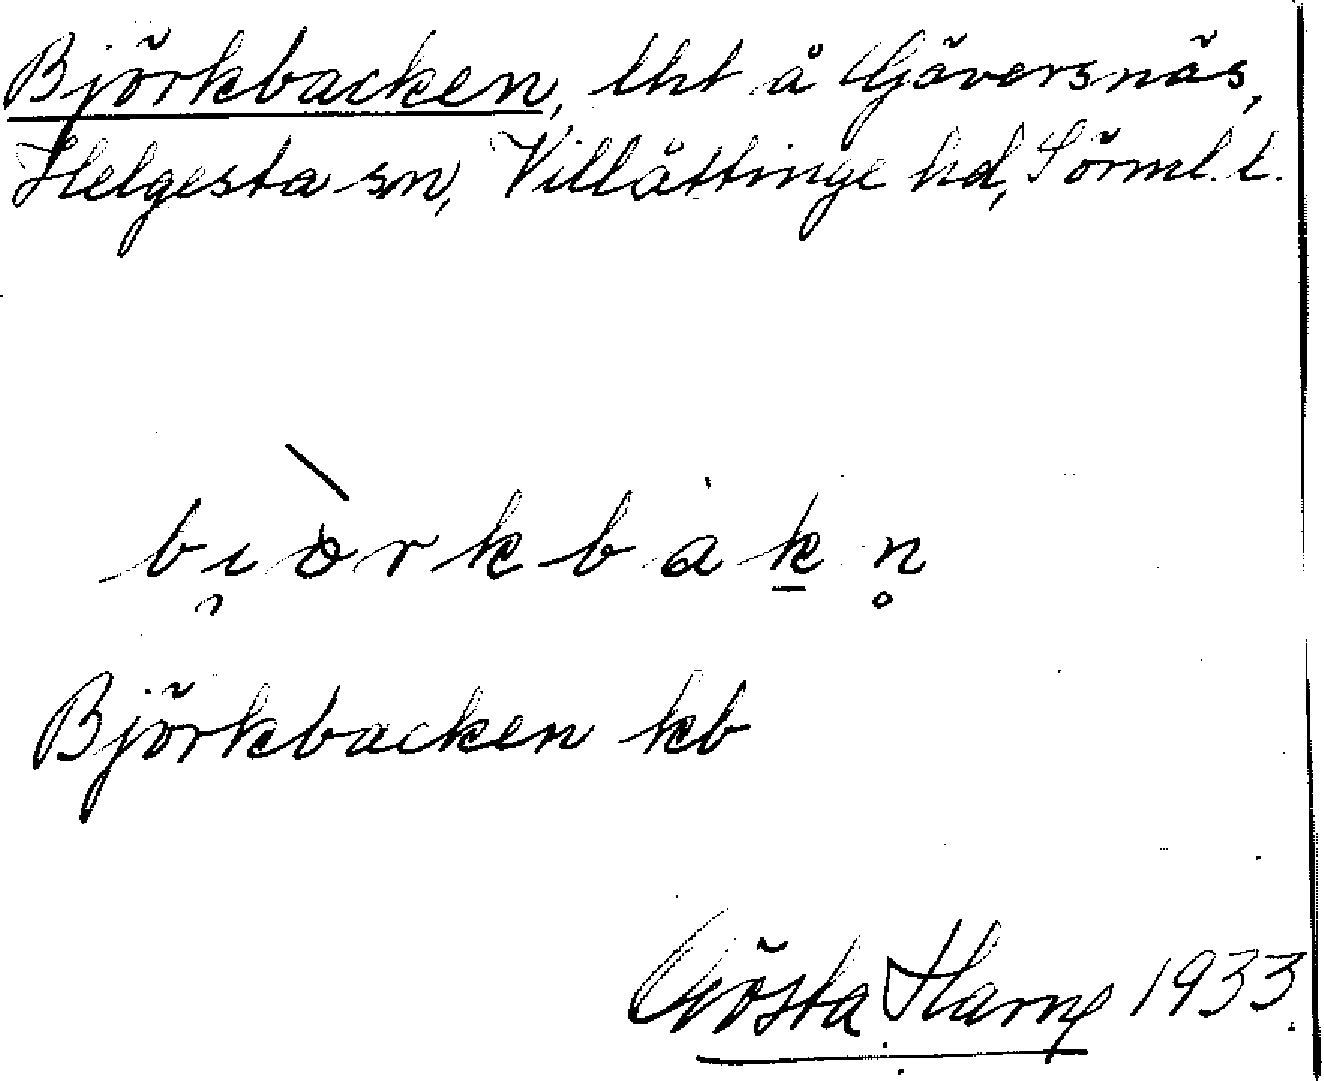 Björkbacken, lht å Gäversnäs,
Helgesta sn, Villåttinge hd, Sörml. l.
bi̯òrkbàk̠n̥
Björkbacken kb
Gösta Harng 1933.